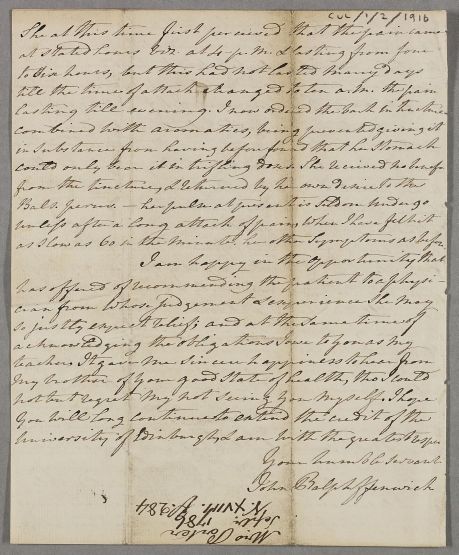 CUL/1/2/1916
She at this time first perceived that the pain came
at stated hours viz. at 4 p.m. & lasting from four
to six hours, but this had not lasted many days
till the time of attack changed to ten a.m. the pain
lasting till evening. I now ordered the bark in tincture
combined with aromatics, being prevented giving it
in substance from having before found that her stomach
could only bear it in trifling doses. She received no benefit
from the tincture, & returned by her own desire to the
Bals. peruv. – her pulse at present is seldom under 90
unless after a long attack of pain, when I have felt it
as slow as 60 in the minute her other symptoms as before
I am happy in the opportunity that
has offered of recommending the patient to a physi-
cian from whose judgement & experience she may
so justly expect relief; and at the same time of
acknowledging the obligations I owe to you as my
teacher. It gave me sincere happiness to hear from
my brother of your good state of health, tho I could
not but regret my not seeing you myself. I hope
you will long continue to extend the credit of the
University of Edinburgh, I am with the greatest respect
Your humble servant
John Ralph Fenwick
Mrs Porter
1786
V. XVIII p. 284